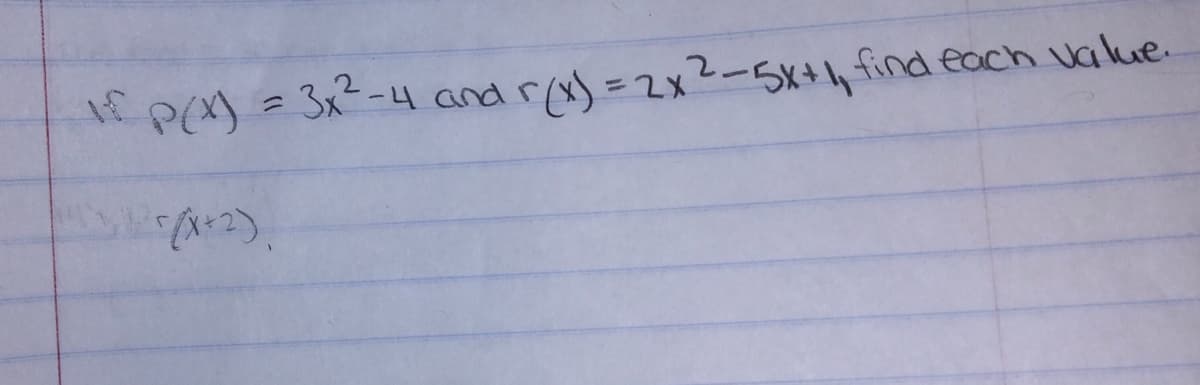 If p(x) = 3x²-4 and r(x) = 2x²-5x+1, find each value.
r(x+2).